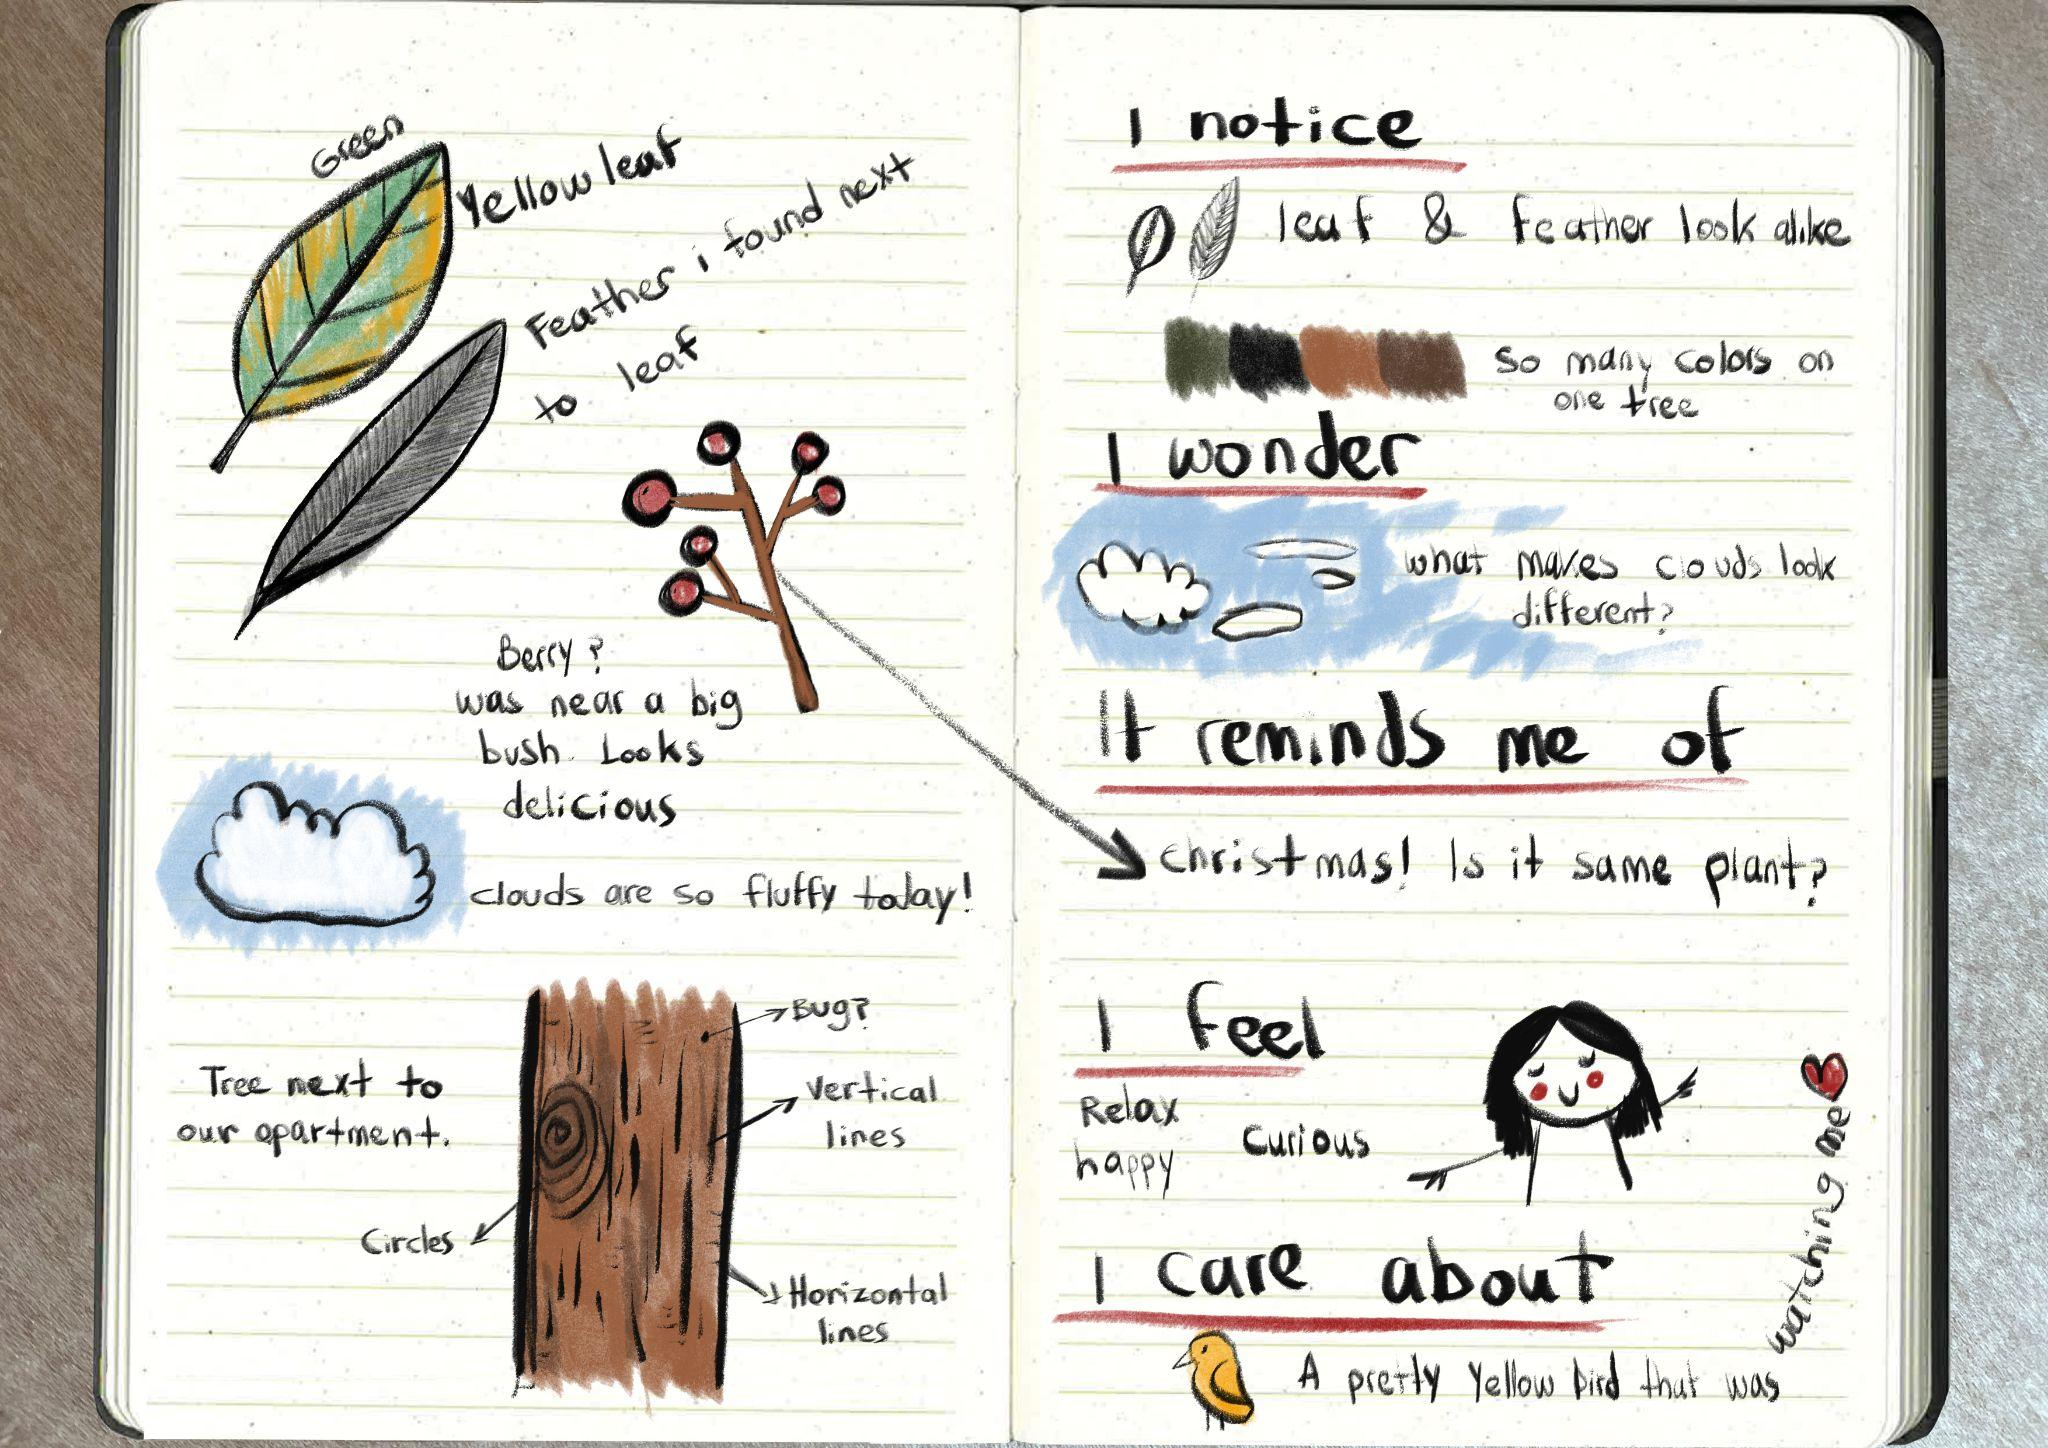 Green
Yellow leaf
Feather i found next
to leaf
Berry?
was near a big
bush. Looks
delicious
clouds are so fluffy today!
Tree next to
our apartment.
Bug?
Vertical
lines
Circles
Horizontal
lines
I notice
leaf & Feather look alike
so many colors on
one tree
I wonder
what makes clouds look
different?
It reminds me of
christmas! Is it same plant?
I feel
Relax
happy
Curious
I care about
A pretty Yellow bird that was
watching me